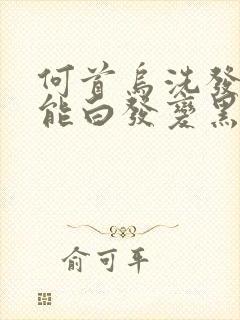 何首烏洗發
能白發變黑
俞可平